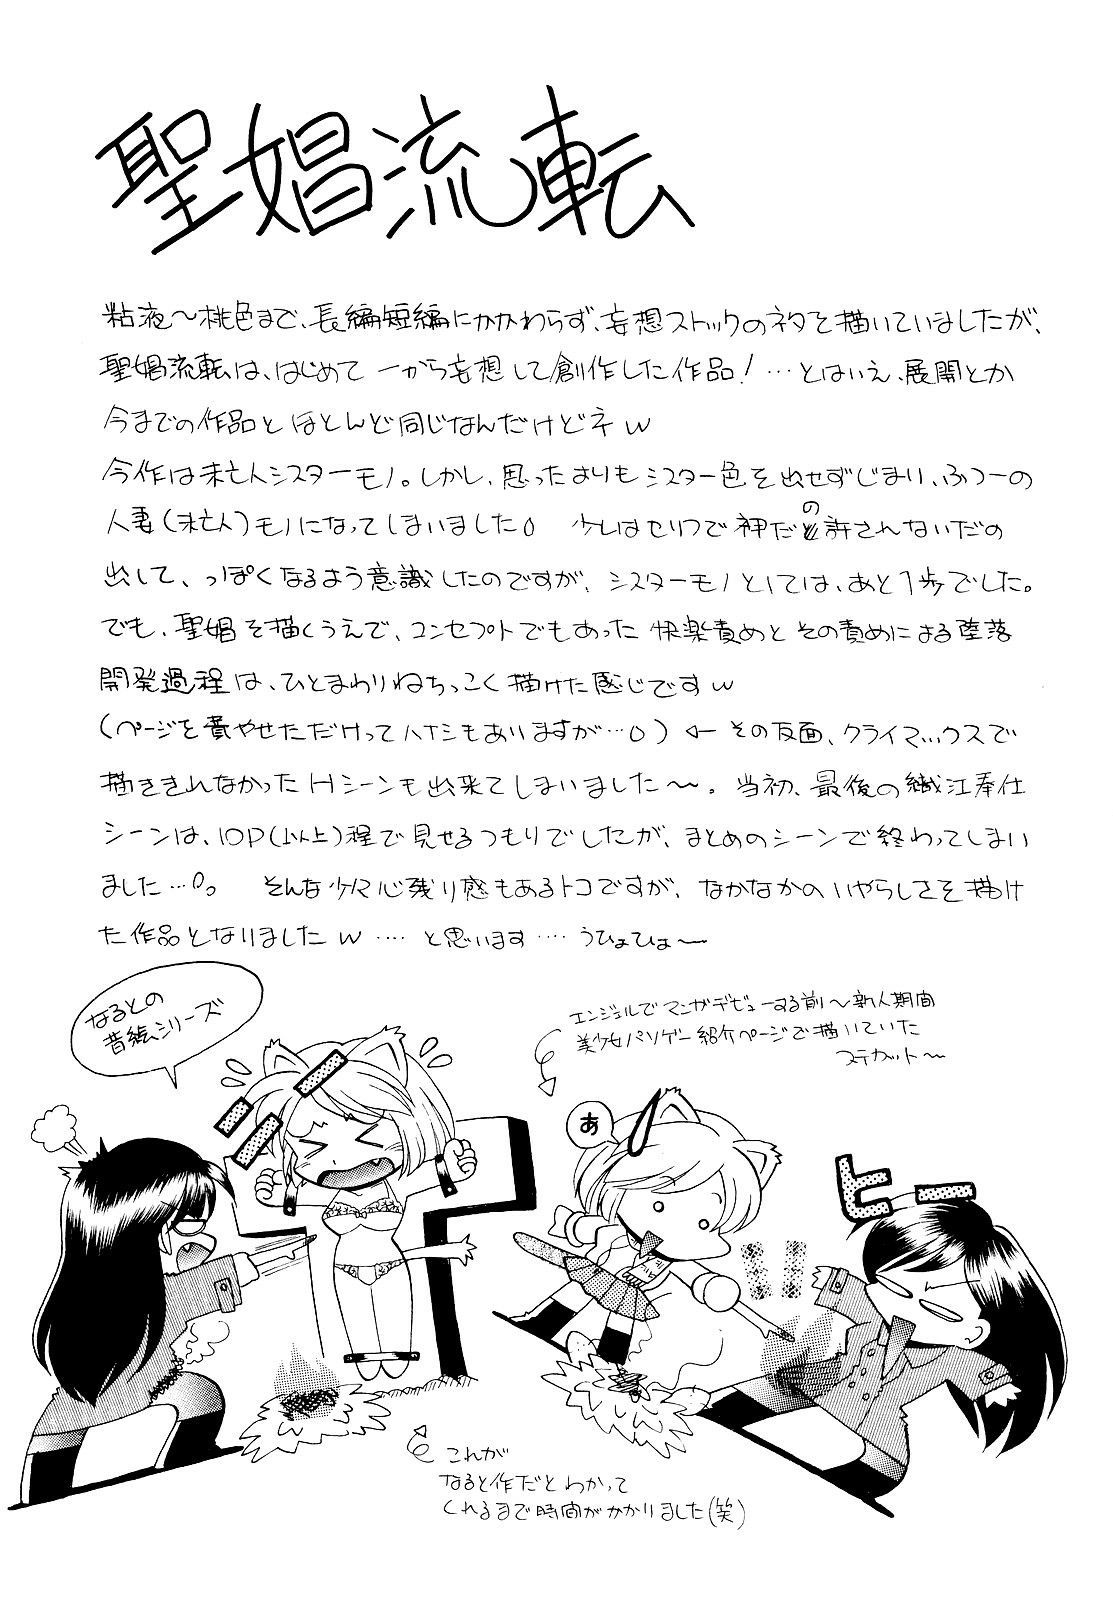 聖娼流転
粘液～桃色まで、長編短編にかかわらず、妄想ストックのネタを描いていましたが、
聖娼流転は、はじめて一から妄想して創作した作品！…とはいえ、展開とか
今までの作品とほとんど同じなんだけどネw
今作は未亡人シスターモノ。しかし、思ったよりもシスター色を出せずじまい、ふつーの
人妻(未亡人)モノになってしまいました 少しはセリフで神だの許されないだの
出して、っぽくなるよう意識したのですが、シスターモノとしては、あと1歩でした。
でも、聖娼を描くうえで、コンセプトでもあった快楽責めとその責めによる堕落
開発過程は、ひとまわりねちっこく描けた感じですw
(ページを費やせただけってハナシもありますが…) ← その反面、クライマックスで
描ききれなかったHシーンも出来てしまいました～。当初、最後の織江奉仕
シーンは、10P(以上)程で見せるつもりでしたが、まとめのシーンで終わってしまい
ました…。 そんな少々心残り感もあるトコですが、なかなかのいやらしさを描け
た作品となりましたw …. と思います …. うひょひょ～
なるとの
昔絵シリーズ
エンジェルでマンガデビューする前～新人期間
美少女パソゲー紹介ページで描いていた
ステカット～
コラー
あ
ヒー
これが
なると作だとわかって
くれるまで時間がかかりました(笑)